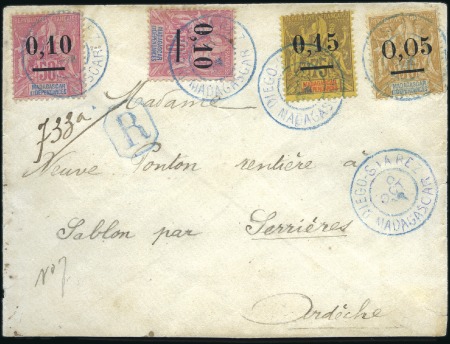 0,10 0,10 0,15 0,05
MADAGASCAR
Madame
733a
R
Neuve Ponton rentière à
DIEGO-SUAREZ
MADAGASCAR
Sablon par Serrières
No 7
Ardèche